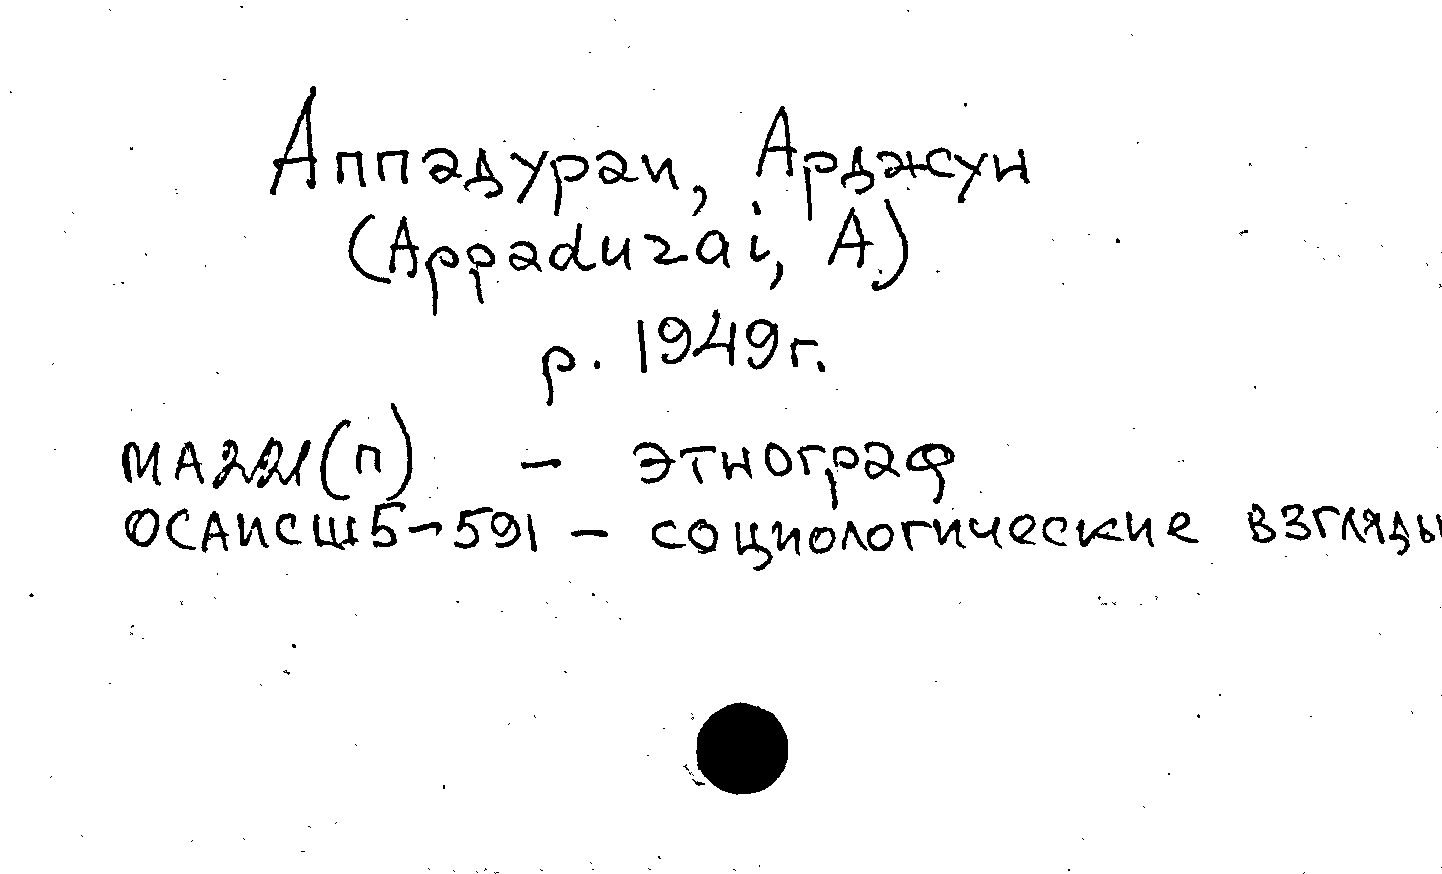 Аппадураи, Арджун
(Appadurai, A.)
р. 1949г.
МА221(п) - этнограф
ОСАИСШ5-591 - социологические взгляды